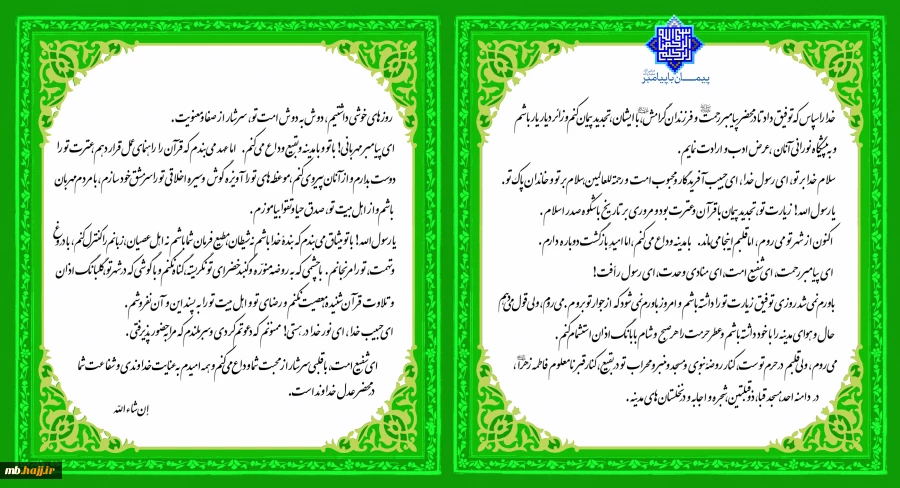 پیمان با پیامبر
خدا را سپاس که توفیق داد تا در محضر پیامبر رحمت ﷺ و فرزندان گرامش، با ایشان، تجدید پیمان کنم و زائر دیار یار باشم
و به پیشگاه نورانی آنان، عرض ادب و ارادت نمایم.
سلام خدا بر تو، ای رسول خدا، ای حبیب آفریدگار و محبوب امت و رحمة للعالمین، سلام بر تو و خاندان پاک تو.
یا رسول الله! زیارت تو، تجدید پیمان با قرآن و عترت بود و مروری بر تاریخ با شکوه صدر اسلام.
اکنون از شهر تو می روم، اما قلبم اینجا می ماند. با مدینه وداع می کنم، اما امید بازگشت دوباره دارم.
ای پیامبر رحمت، ای شفیع امت، ای منادی وحدت، ای رسول رأفت!
باورم نمی شد روزی توفیق زیارت تو را داشته باشم و امروز باورم نمی شود که از جوار تو بروم. می روم، ولی قول می دهم
حال و هوای مدینه را با خود داشته باشم و عطر حرمت را هر صبح و شام با بانگ اذان استشمام کنم.
می روم، ولی قلبم در حرم توست، کنار روضه نبوی و مسجد و منبر و محراب تو، در بقیع، کنار قبر نامعلوم فاطمه زهرا،
در دامنه احد، مسجد قبا، ذو قبلتین، شجره و اجابه و در نخلستان های مدینه.
روزهای خوشی داشتیم، دوش به دوش امت تو، سرشار از صفا و معنویت.
ای پیامبر مهربانی! با تو و با مدینه و بقیع وداع می کنم. اما عهد می بندم که قرآن را راهنمای عمل قرار دهم، عترت تو را
دوست بدارم و از آنان پیروی کنم، موعظه های تو را آویزه گوش و سیره اخلاقی تو را سرمشق خود سازم، با مردم مهربان
باشم و از اهل بیت تو، صدق و حیا و تقوا بیاموزم.
یا رسول الله! با تو میثاق می بندم که بنده خدا باشم نه شیطان، مطیع فرمان شما باشم نه اهل عصیان، زبانم را کنترل کنم، با دروغ
و تهمت، تو را نرنجانم. با چشمی که به روضه منوّره و گنبد خضرای تو نگریسته، گناه نکنم و با گوشی که در شهر تو گلبانگ اذان
و تلاوت قرآن شنیده، معصیت نکنم و رضای تو و اهل بیت تو را به پسند این و آن نفروشم.
ای حبیب خدا، ای نور خدا در هستی! ممنونم که دعوتم کردی و سربلندم که مرا به حضور پذیرفتی.
ای شفیع امت، با قلبی سرشار از محبت شما وداع می کنم و همه امیدم به عنایت خداوندی و شفاعت شما
در محضر عدل خداوند است.
إن شاء الله
mb.hajj.ir